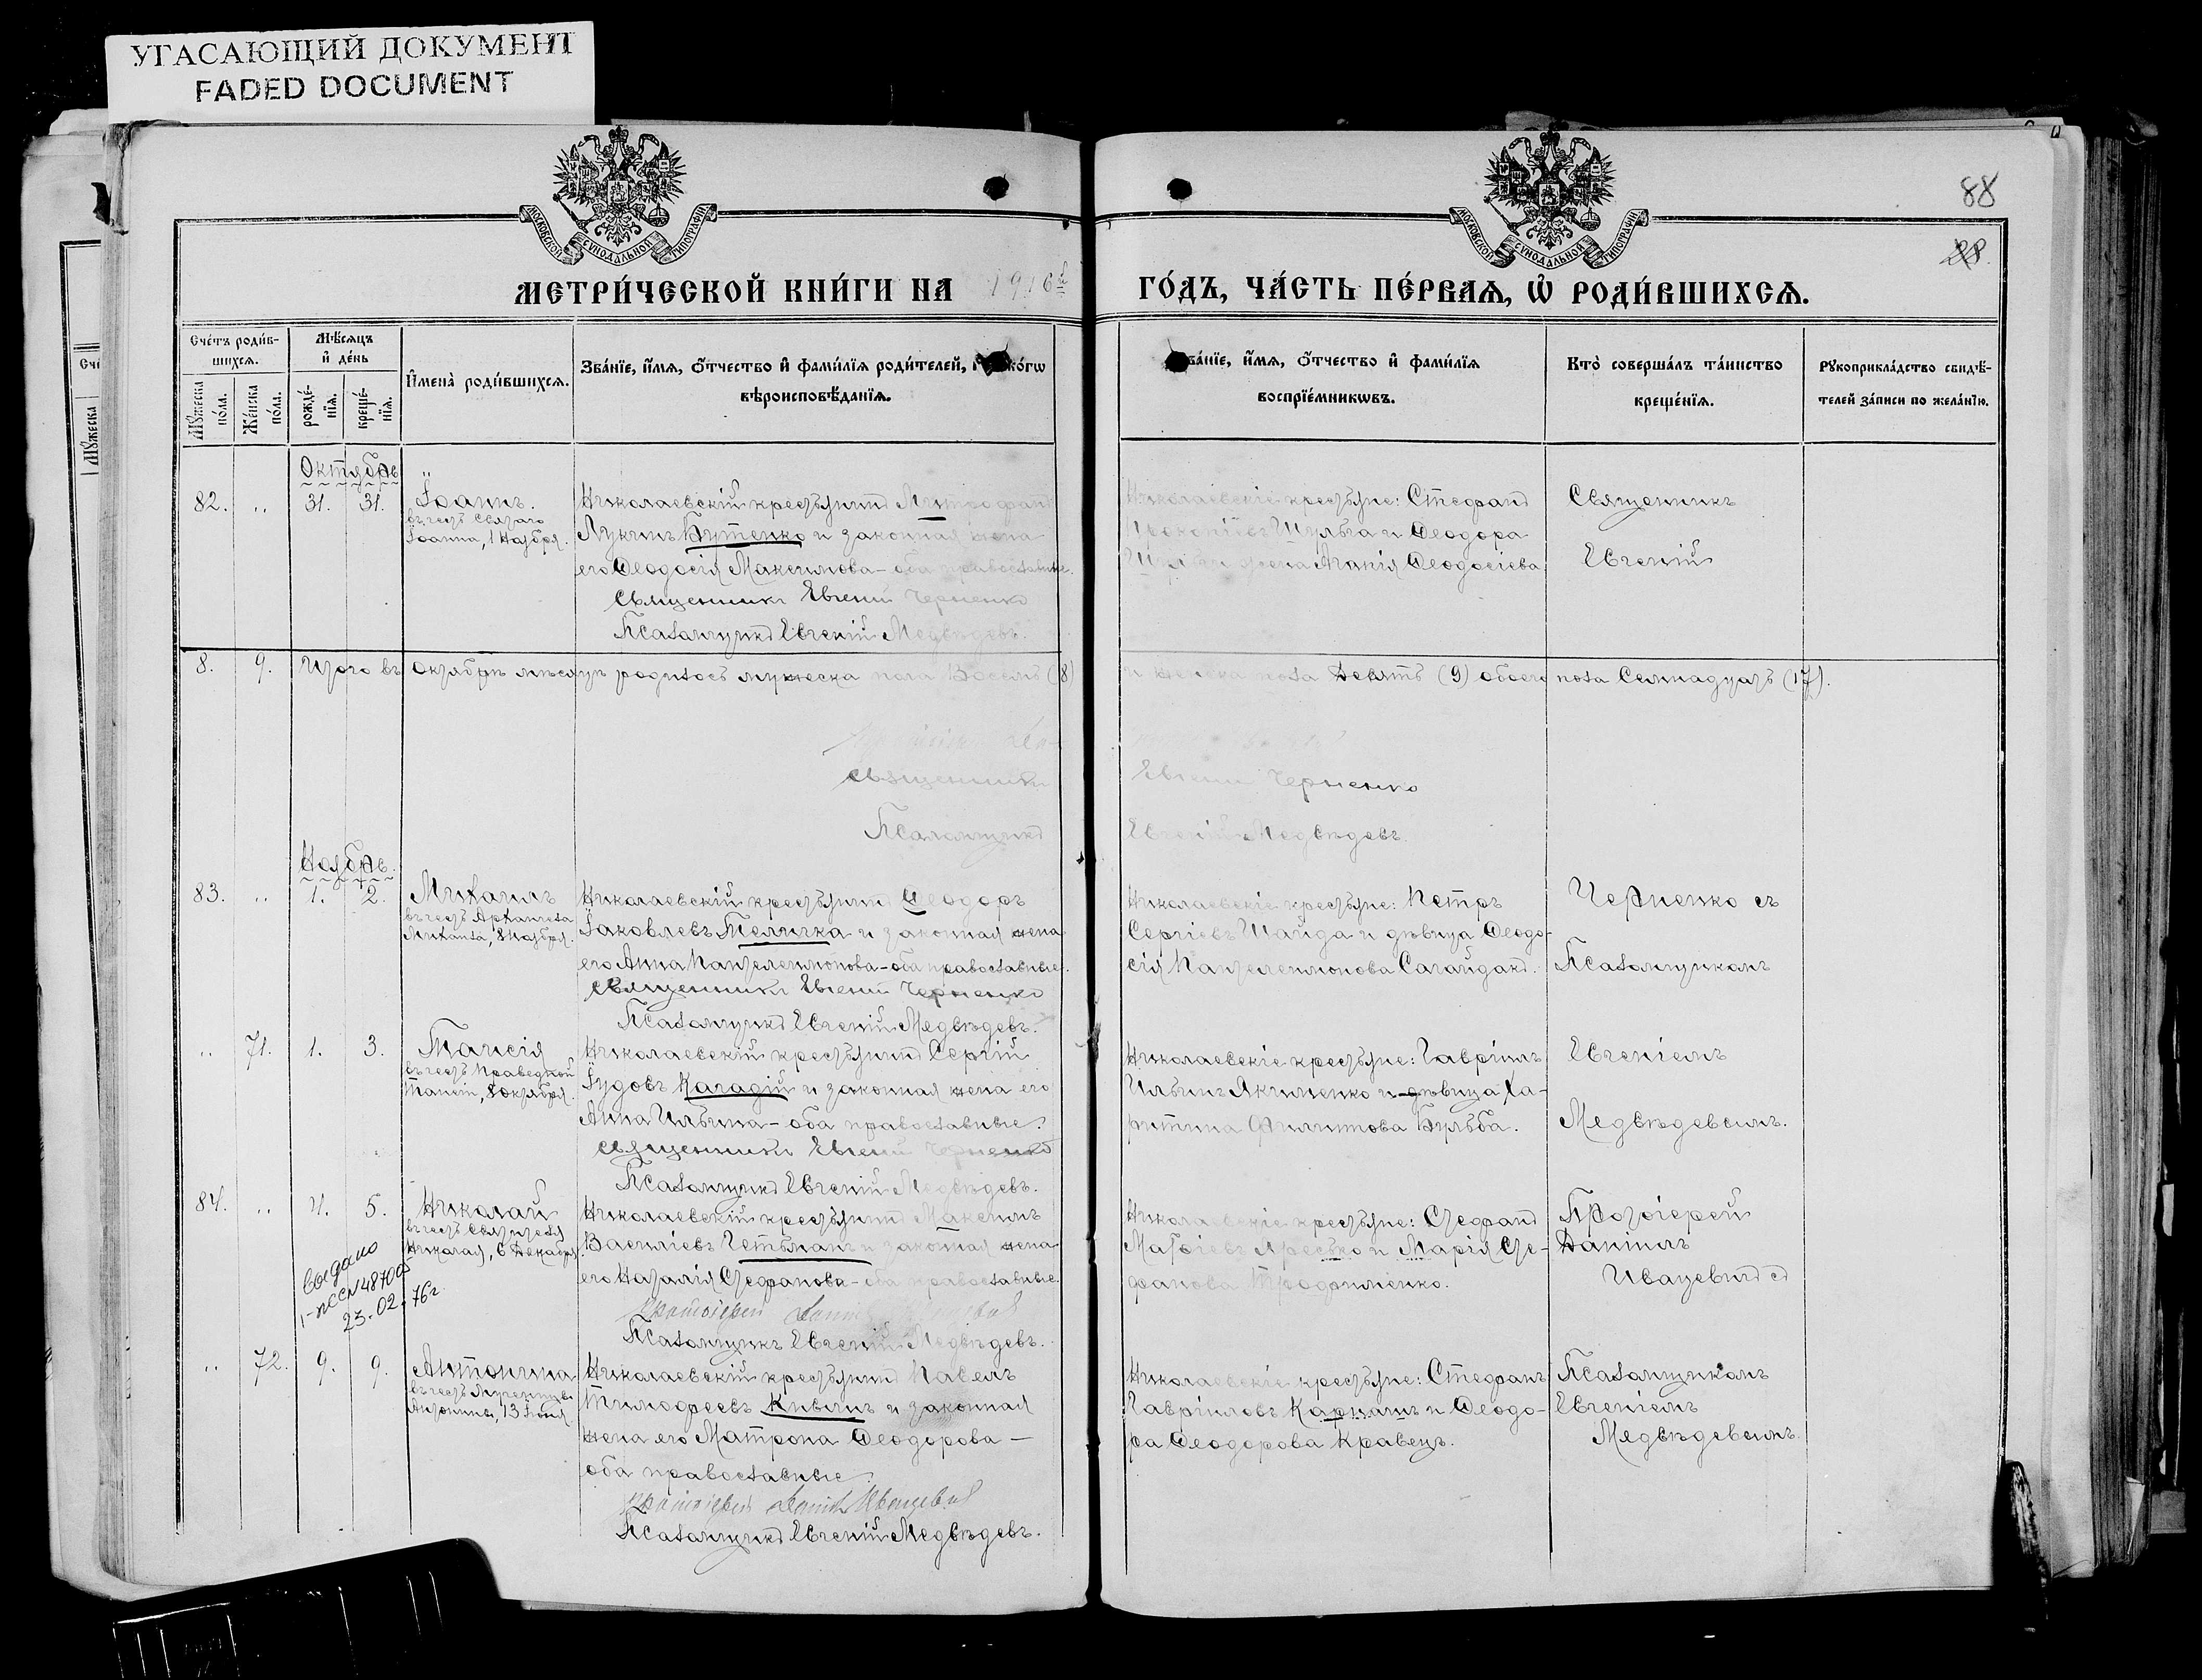 УГАСАЮЩИЙ ДОКУМЕНТ
FADED DOCUMENT
МОСКОВСКОЙ СѴНОДАЛЬНОЙ ТИПОГРАФІИ
МОСКОВСКОЙ СѴНОДАЛЬНОЙ ТИПОГРАФІИ
88
28.
МЕТРИ́ЧЕСКОЙ КНИ́ГИ НА 1916й ГО́ДЪ, ЧА́СТЬ ПЕ́РВАѦ, Ѡ҆ РОДИ́ВШИХСѦ.
Сче́тъ роди́в-
шихсѧ.
Мꙋ́жеска по́ла.
Же́нска по́ла.
Мѣ́сѧцъ
и҆ де́нь
рожде́-
нїѧ.
креще́-
нїѧ.
И҆мена̀ роди́вшихсѧ.
Зва́нїе, и҆́мѧ, ѻ҆́тчество и҆ фами́лїѧ роди́телей, и҆ како́гѡ
вѣроисповѣ́данїѧ.
ва́нїе, и҆́мѧ, ѻ҆́тчество и҆ фами́лїѧ
воспрїе́мникѡвъ.
Кто̀ соверша́лъ та́инство
креще́нїѧ.
Рꙋкоприкла́дство свидѣ́-
телей за́писи по жела́нїю.
Октябрь
82. „ 31. 31. Іоаннъ.
въ честь Святаго
Іоанна, 1 Ноября.
Николаевскій крестьянинъ Митрофанъ
Лукинъ Бутенко и законная жена
его Ѳеодосія Максимова - оба православные.
Священникъ Евгеній Черненко
Псаломщикъ Евгеній Медвѣдевъ.
Николаевскіе крестьяне: Стефанъ
Прокопіевъ Шульга и Ѳеодора
жена Агапія Ѳеодосіева
Священникъ
Евгеній
8. 9. Итого въ Октябрѣ мѣсяцѣ родилось мужеска пола Восемь (8) и женска пола Девять (9) обоего пола Семнадцать (17).
Священникъ Евгеній Черненко
Псаломщикъ Евгеній Медвѣдевъ.
Ноябрь.
83. „ 1. 2. Михаилъ
въ честь Архангела
Михаила, 8 Ноября.
Николаевскій крестьянинъ Ѳеодоръ
Іаковлевъ Теличка и законная жена
его Анна Пантелеимонова - оба православные.
Священникъ Евгеній Черненко
Псаломщикъ Евгеній Медвѣдевъ.
Николаевскіе крестьяне: Петръ
Сергіевъ Шайда и дѣвица Ѳеодо-
сія Пантелеимонова Сагайдакъ.
Черненко съ
Псаломщикомъ
„ 71. 1. 3. Таисія
въ честь Праведной
Таисіи, 8 Октября.
Николаевскій крестьянинъ Сергій
Іудовъ Кагадій и законная жена его
Анна Ильина - оба православные.
Священникъ Евгеній Черненко
Псаломщикъ Евгеній Медвѣдевъ.
Николаевскіе крестьяне: Гавріилъ
Ильинъ Якименко и дѣвица Ха-
ритина Филиппова Бульба.
Евгеніемъ
Медвѣдевымъ.
84. „ 4. 5. Николай
въ честь Святителя
Николая, 6 Декабря.
выдано
23-02-76г
Николаевскій крестьянинъ Максимъ
Василіевъ Гетьманъ и законная жена
его Наталія Стефанова - оба православные.
Протоіерей Даніилъ Ивацевичъ
Псаломщикъ Евгеній Медвѣдевъ.
Николаевскіе крестьяне: Стефанъ
Матѳіевъ Яресько и Марія Сте-
фанова Трофименко.
Протоіерей
Даніилъ
Ивацевичъ съ
„ 72. 9. 9. Антонина
въ честь Мученицы
Антонины, 13 Іюня.
Николаевскій крестьянинъ Павелъ
Тимофеевъ Кившъ и законная
жена его Матрона Ѳеодорова —
оба православные.
Протоіерей Даніилъ Ивацевичъ
Псаломщикъ Евгеній Медвѣдевъ.
Николаевскіе крестьяне: Стефанъ
Гавріиловъ Карнашъ и Ѳеодо-
ра Ѳеодорова Кравецъ.
Псаломщикомъ
Евгеніемъ
Медвѣдевымъ.